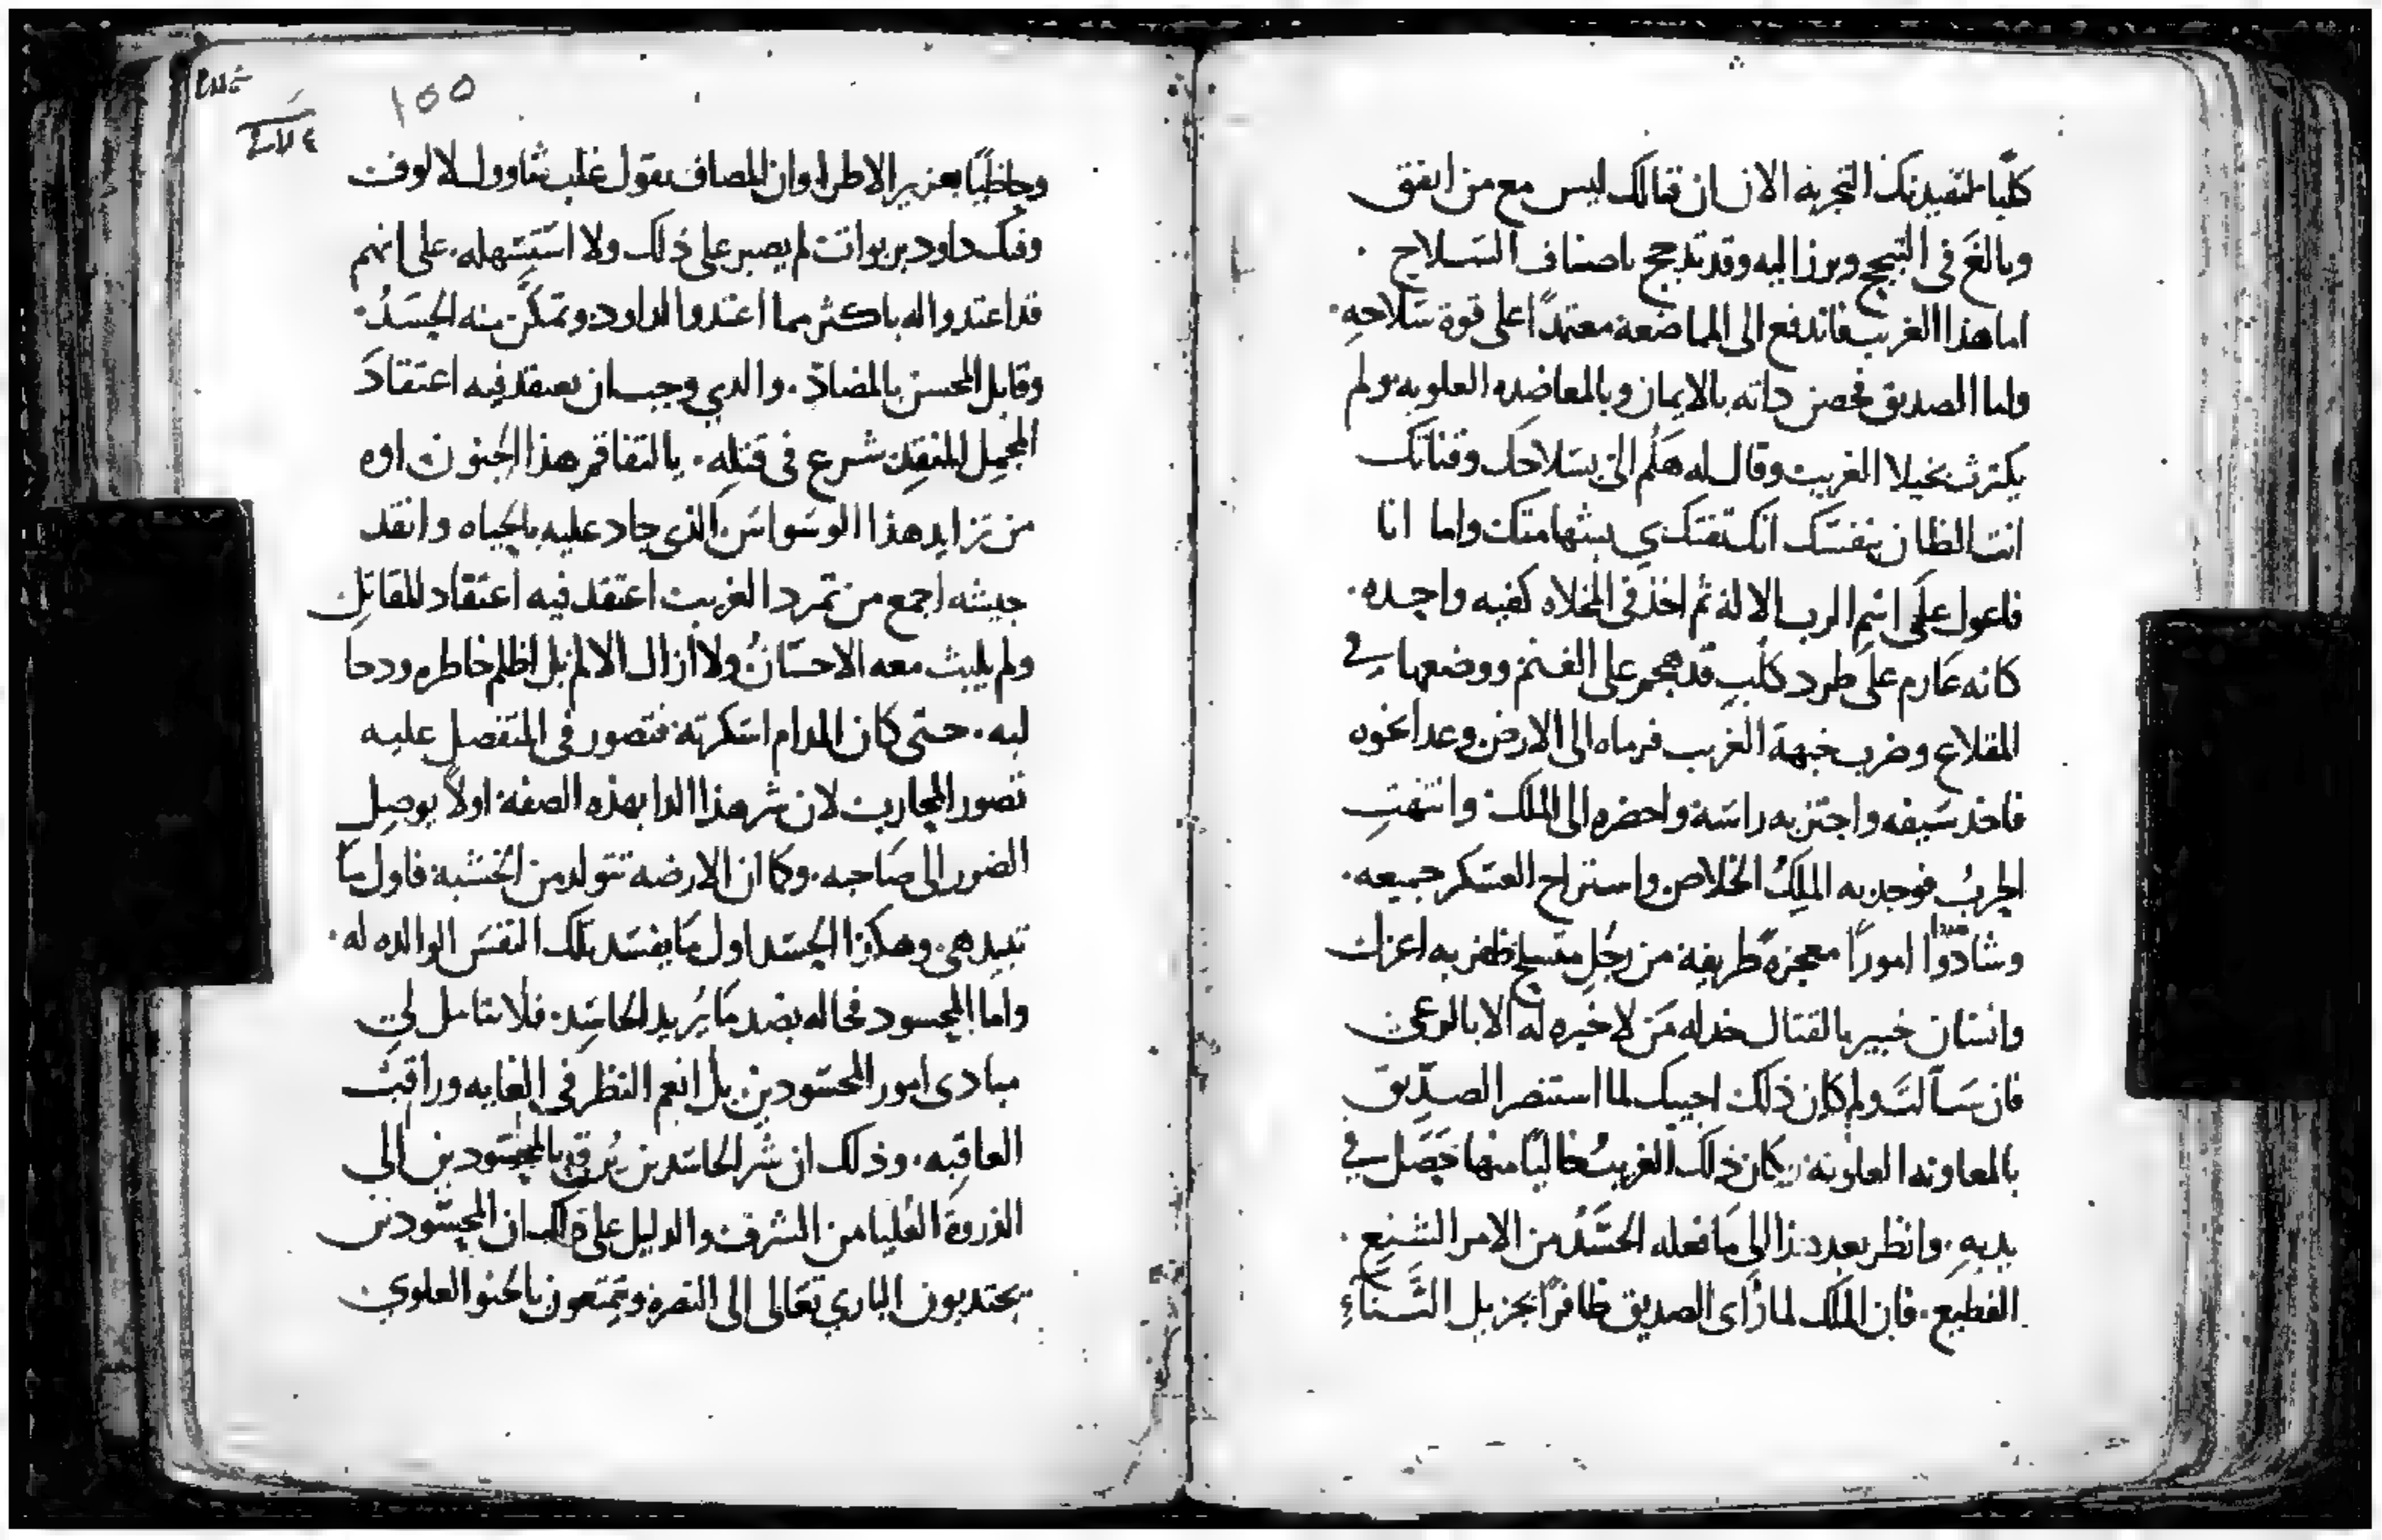 كلبًا لتفيدنك التجربه الان ان قتالك ليس مع من اتفق
وبالغَ في التبجح وبرز اليه وقد تدجج باصناف السَلاح
اما هذا الغريب فاندفع الى المماضعة معتمدًا على قوة سَلاحهِ
واما الصديق فحصن داته بالايمان وبالمعاضده العلويه ولم
يكترث بخيلا الغريب وقال له هَلُم اليّ بسَلاحك وقناتك
انت الظان بنفسَك انك تفتك بي بشهامتك واما انا
فاعول على اسَم الرب الاله ثم اخذ في المخلاه كفيه واحده
كانه عَارم على طرد كلبٍ قد هجم على الغنم ووضعها في
المقلاع وضرب جبهة الغريب فرماه الى الارض وعدا نحوه
فاخد سَيفه واجتز به راسَه واحضره الى الملك وانتهت
الحربُ فوجد به الملِكُ الخلاص واستراح العسَكر جميعه
وشاهدوا امورًا معجزةً طريفه من رجُلٍ متسلح ظفر به اعزل
وانسَان خبير بالقتال خدله مَن لا خبره له الا بالرعي
فان سَالت ولم كان ذلك اجيبك لما استنصر الصدّيق
بالمعاونه العلويه وكان ذلك الغريبُ خاليًا منها حَصَل في
يديهِ وانظر بعد هذا الى مَا فعله الحسَّدُ من الامر الشنيع
الفظيع فان الملك لما رَاى الصديق ظافرًا بجزيل الثَناءِ
١٥٥
وحاظيًا بعزيز الاطرا وان المصاف يقول غلب شاوول الالوف
وفتك داود بربوات لم يصبر على ذلك ولا استسهله على انهم
قد اعتدوا له باكثر مما اعتدوا لداود وتمكَّن منه الحسَدُ
وقابل المحسن بالمضادّ والدي وجب ان يعتقد فيه اعتقادَ
المجمِل المنقِذ شرع في قتلِه يا لتفاقم هذا الجنون اوه
من تزايد هذا الوسَواسَ الذي جاد عليه بالحياه وانقد
جيشه اجمع من تمرد الغريب اعتقد فيه اعتقاد المقاتِل
ولم يلبث معه الاحسَانُ ولا ازال الالم بل اظلم خاطره ودحا
لبه حتى كان المدام اسَكرته فتصور في المتفضل عليه
تصور المحارب لان شر هذا الدا بهذه الصفه اولاً يوصِل
الضرر الى صَاحبه وكما ان الارضه تتولد من الخشبه فاول مَا
تبيد هي وهكذا الحسَد اول مَا يفسَد تلك النفسَ الوالده له
واما المحسود فحاله بضد مَا يُريد الحاسَد فلا تتامل لي
مبادى امور المحسَودين بل انعم النظر في الغايه وراقبْ
العاقِبه وذلك ان شر الحاسَدين يُرقي بالمحسَودين الى
الذروة العُليا من الشرف والدليل على ذلك ان المحسَّودين
يجتدبون الباري تعَالى الى النصرة ويتمتعون بالحنو العلوي